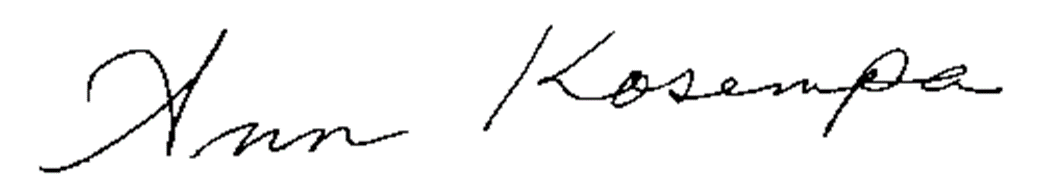 Ann Kosempa